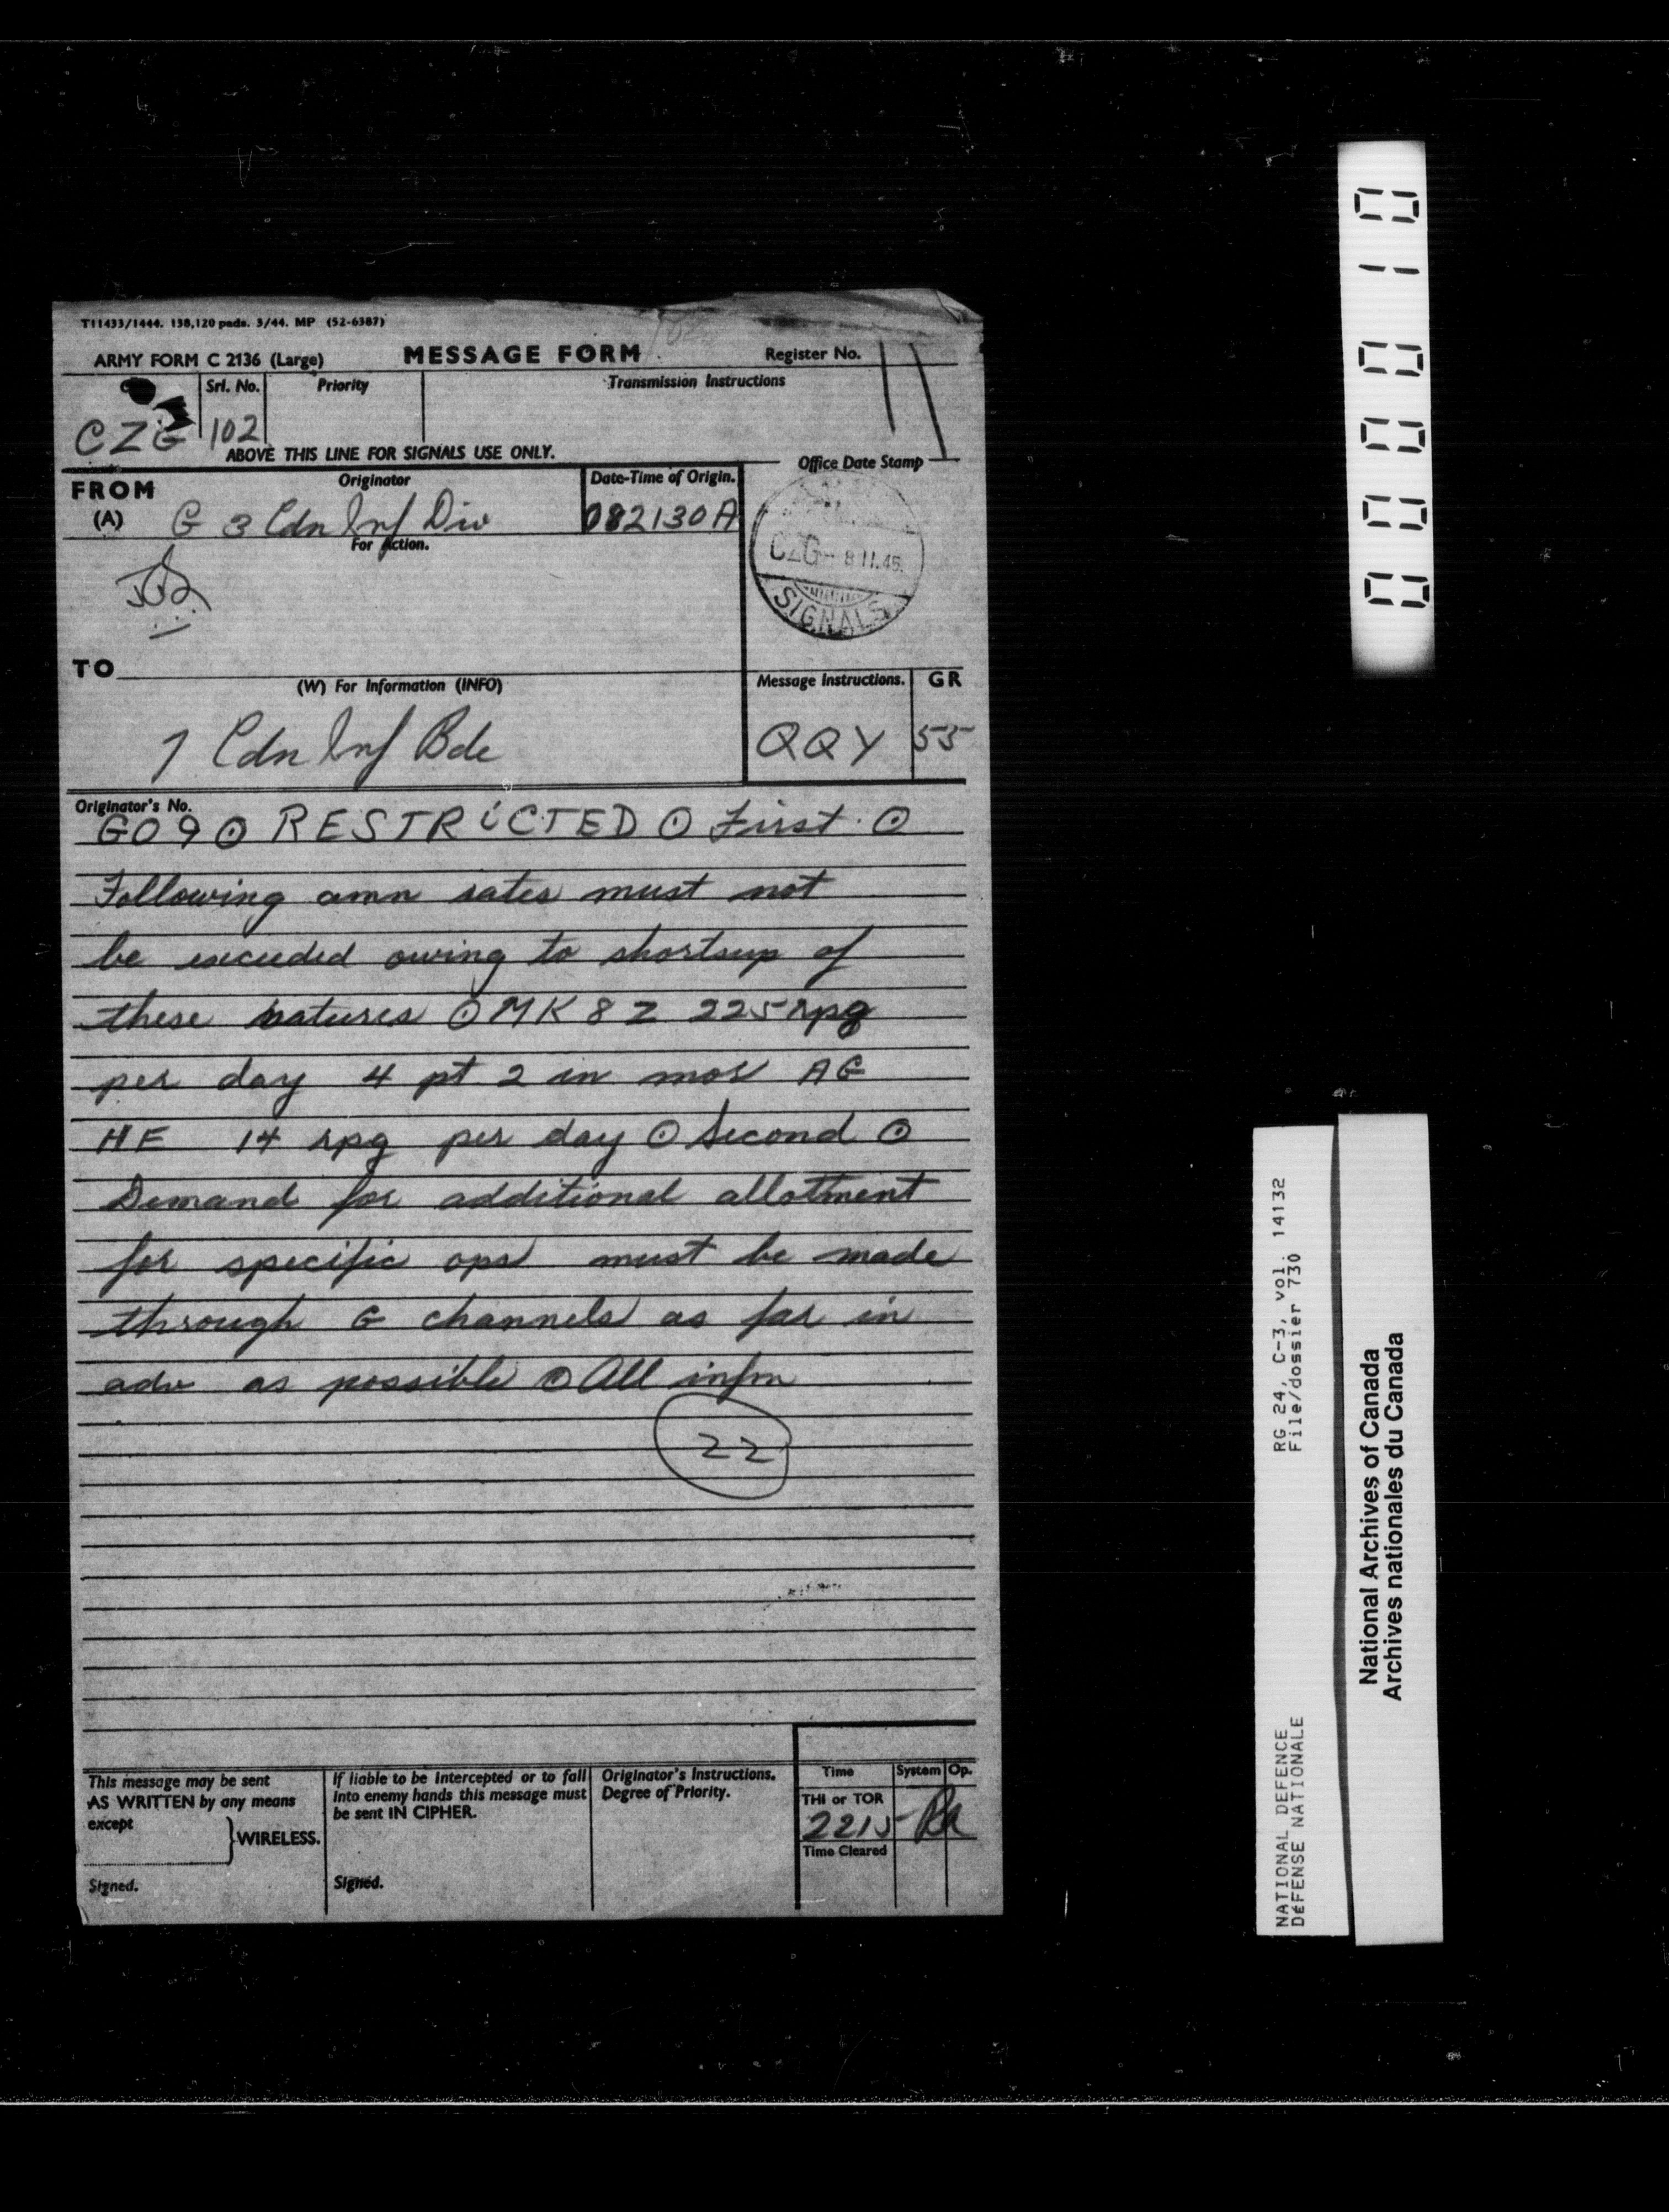 T11433/1444. 138,120 pads. 3/44. MP (52-6387)
ARMY FORM C 2136 (Large) MESSAGE FORM Register No.
Srl. No. Priority Transmission Instructions
CZG 102
ABOVE THIS LINE FOR SIGNALS USE ONLY.
FROM Originator Date-Time of Origin. Office Date Stamp
(A) G 3 Cdn Inf Div 082130A
For Action.
CZG - 8 II.45.
SIGNALS
TO
(W) For Information (INFO) Message Instructions. GR
7 Cdn Inf Bde QQY 55
Originator's No.
G09 ⊙ RESTRiCTED ⊙ First ⊙
Following amn rates must not
be exceeded owing to shortsup of
these natures ⊙ MK 8 Z 225 rpg
per day 4 pt 2 in mor AG
HE 14 rpg per day ⊙ Second ⊙
Demand for additional allotment
for specific ops must be made
through G channels as far in
adv as possible ⊙ All infm
22
This message may be sent
AS WRITTEN by any means
except
WIRELESS.
Signed.
If liable to be intercepted or to fall
into enemy hands this message must
be sent IN CIPHER.
Signed.
Originator's Instructions.
Degree of Priority.
Time System Op.
THI or TOR
2215
Time Cleared
000010
RG 24, C-3, vol. 14132
File/dossier 730
NATIONAL DEFENCE
DÉFENSE NATIONALE
National Archives of Canada
Archives nationales du Canada